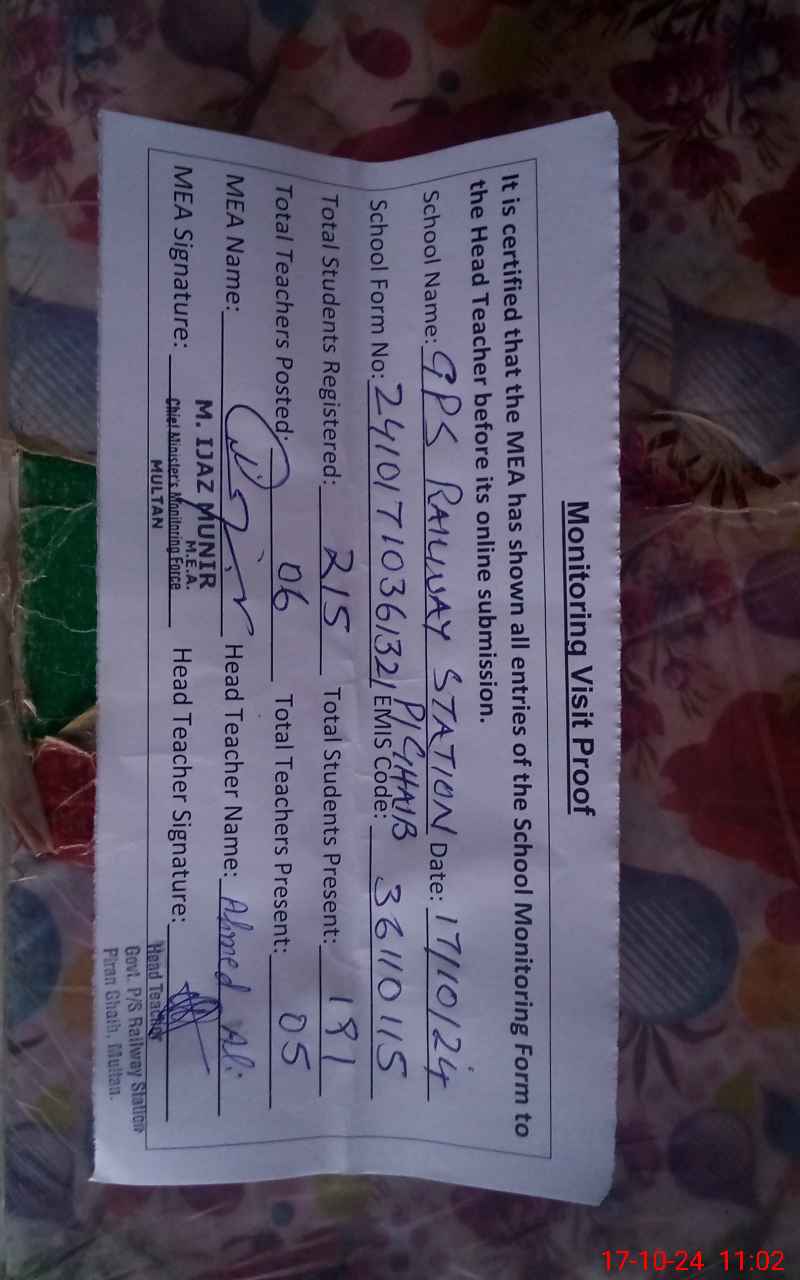 Monitoring Visit Proof
It is certified that the MEA has shown all entries of the School Monitoring Form to
the Head Teacher before its online submission.
School Name: GPS RAILWAY STATION Date: 17/10/24
P/GHAIB
School Form No: 24101710361321 EMIS Code: 36110115
Total Students Registered: 215 Total Students Present: 191
Total Teachers Posted: 06 Total Teachers Present: 05
MEA Name: Head Teacher Name: Ahmed Ali
M. IJAZ MUNIR
M.E.A.
MEA Signature: Chief Minister's Monitoring Force Head Teacher Signature:
MULTAN
Head Teacher
Govt. P/S Railway Station
Piran Ghaib, Multan.
17-10-24 11:02